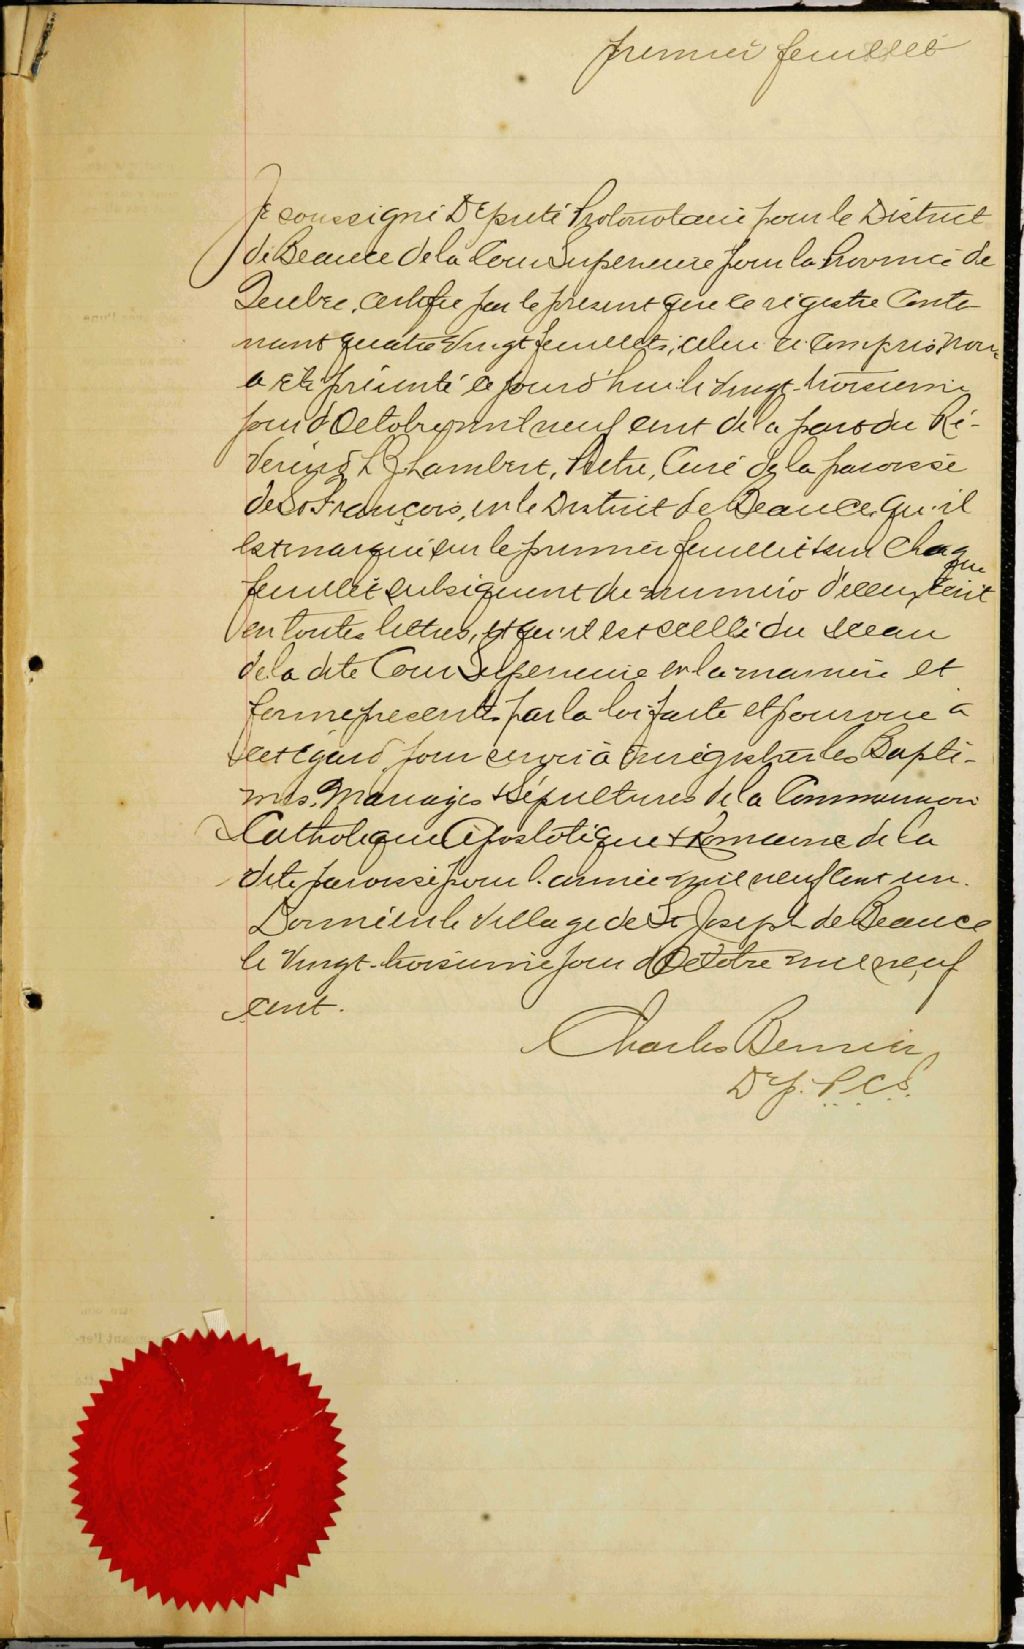 premier feuillet
Je soussigné Député Protonotaire pour le District
de Beauce de la Cour Superieure pour la Province de
Quebec, certifie par le present que ce régistre Conte-
nant quatre vingt feuillets, celui ci compris
a été présenté ce jourd'hui le vingt-troisieme
jour d'Octobre mil neuf cent de la part du Ré-
verend Lambert, Prêtre, Curé de la paroisse
de St François, en le District de Beauce, qu'il
est marqué sur le premier feuillet & sur Chaque
feuillet subsiquent du numéro d'iceux, écrit
en toutes lettres, et qu'il est scellé du sceau
de la dite Cour Superieure en la maniere et
forme prescrites par la loi faite et pourvue à
cet égard, pour servir à enrégistrer les Baptê-
mes, Mariages & Sépultures de la Communion
Catholique Apostolique & Romaine de la
dite paroisse pour l'année mil neuf cent un.
Donné en le Village de St Joseph de Beauce
le vingt-troisieme jour d'Octobre mil neuf
cent.
Charles Bernier
Dép. P.C.S.